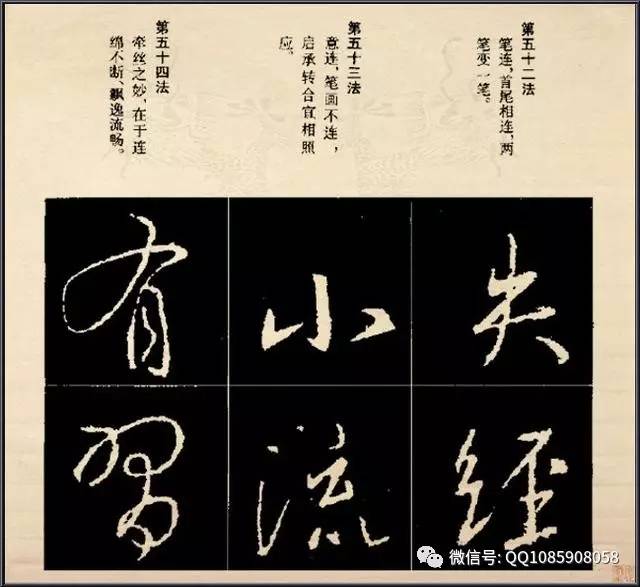 第五十二法
笔连，首尾相连，两
笔变一笔。
第五十三法
意连，笔画不连，
启承转合宜相照
应。
第五十四法
牵丝之妙，在于连
绵不断、飘逸流畅。
失
经
小
流
有
習
微信号: QQ1085908058